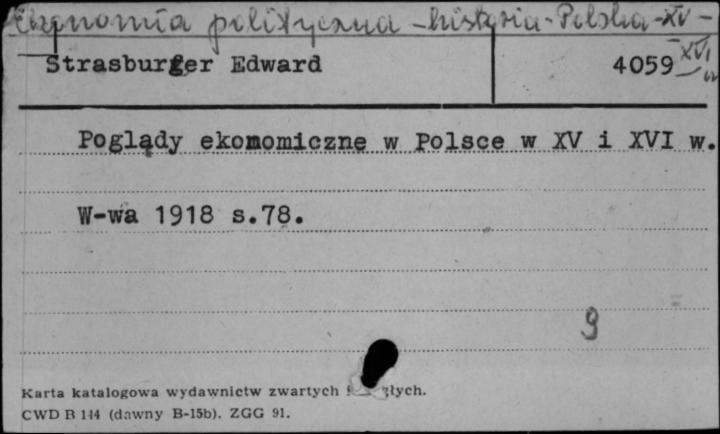 Ekonomia polityczna - historia - Polska - XV -
XVI w
Strasburger Edward 4059
Poglądy ekonomiczne w Polsce w XV i XVI w.
W-wa 1918 s.78.
9
Karta katalogowa wydawnictw zwartych
CWD B 144 (dawny B-15b). ZGG 91.